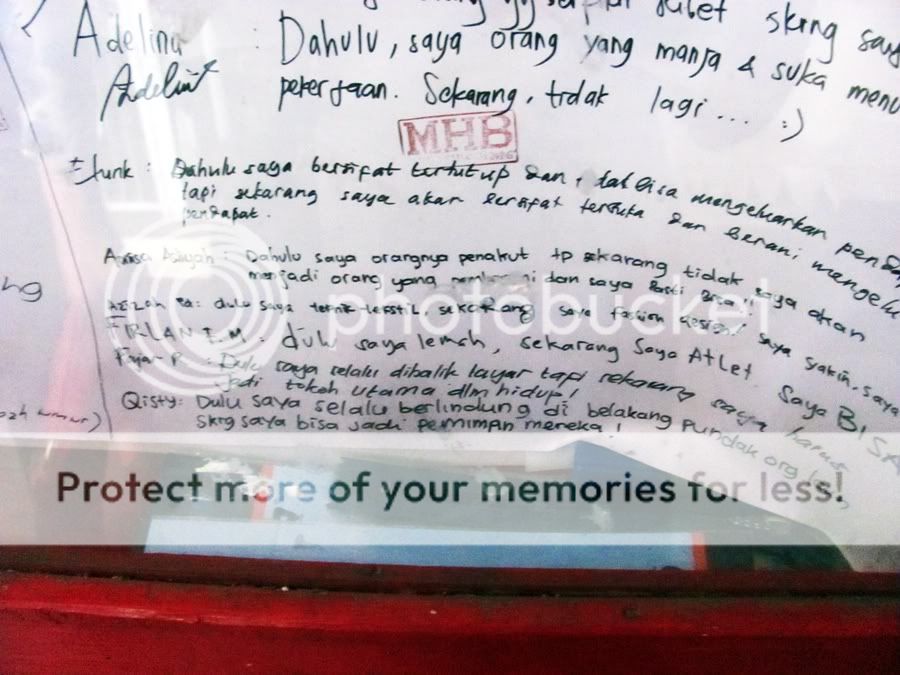 skrng say
Adelina : Dahulu, saya orang yang manja & suka menu
Adelina pekerjaan. Sekarang, tidak lagi... :)
MHB
Junk : Dahulu saya bersifat tertutup dan tdk bisa mengeluarkan penda
tapi sekarang saya akan bersifat terbuka dan berani mengelu
pendapat.
Annisa Asliyah : Dahulu saya orangnya penakut tp sekarang tidak saya akan
menjadi orang yang dan saya Pasti Bisa!
AZIZAH : dulu saya teknik tekstil, sekarang saya fashion saya yakin saya
IRLAN F.M : dulu saya lemah, sekarang Saya Atlet. Saya BISA
Fajar P. : Dulu saya selalu dibalik layar tapi sekarang saya harus
Jadi tokoh utama dlm hidup!
Qisty: Dulu saya selalu berlindung di belakang pundak org
skrg saya bisa jadi pemimpin mereka!
ng
umur)
photobucket
Protect more of your memories for less!